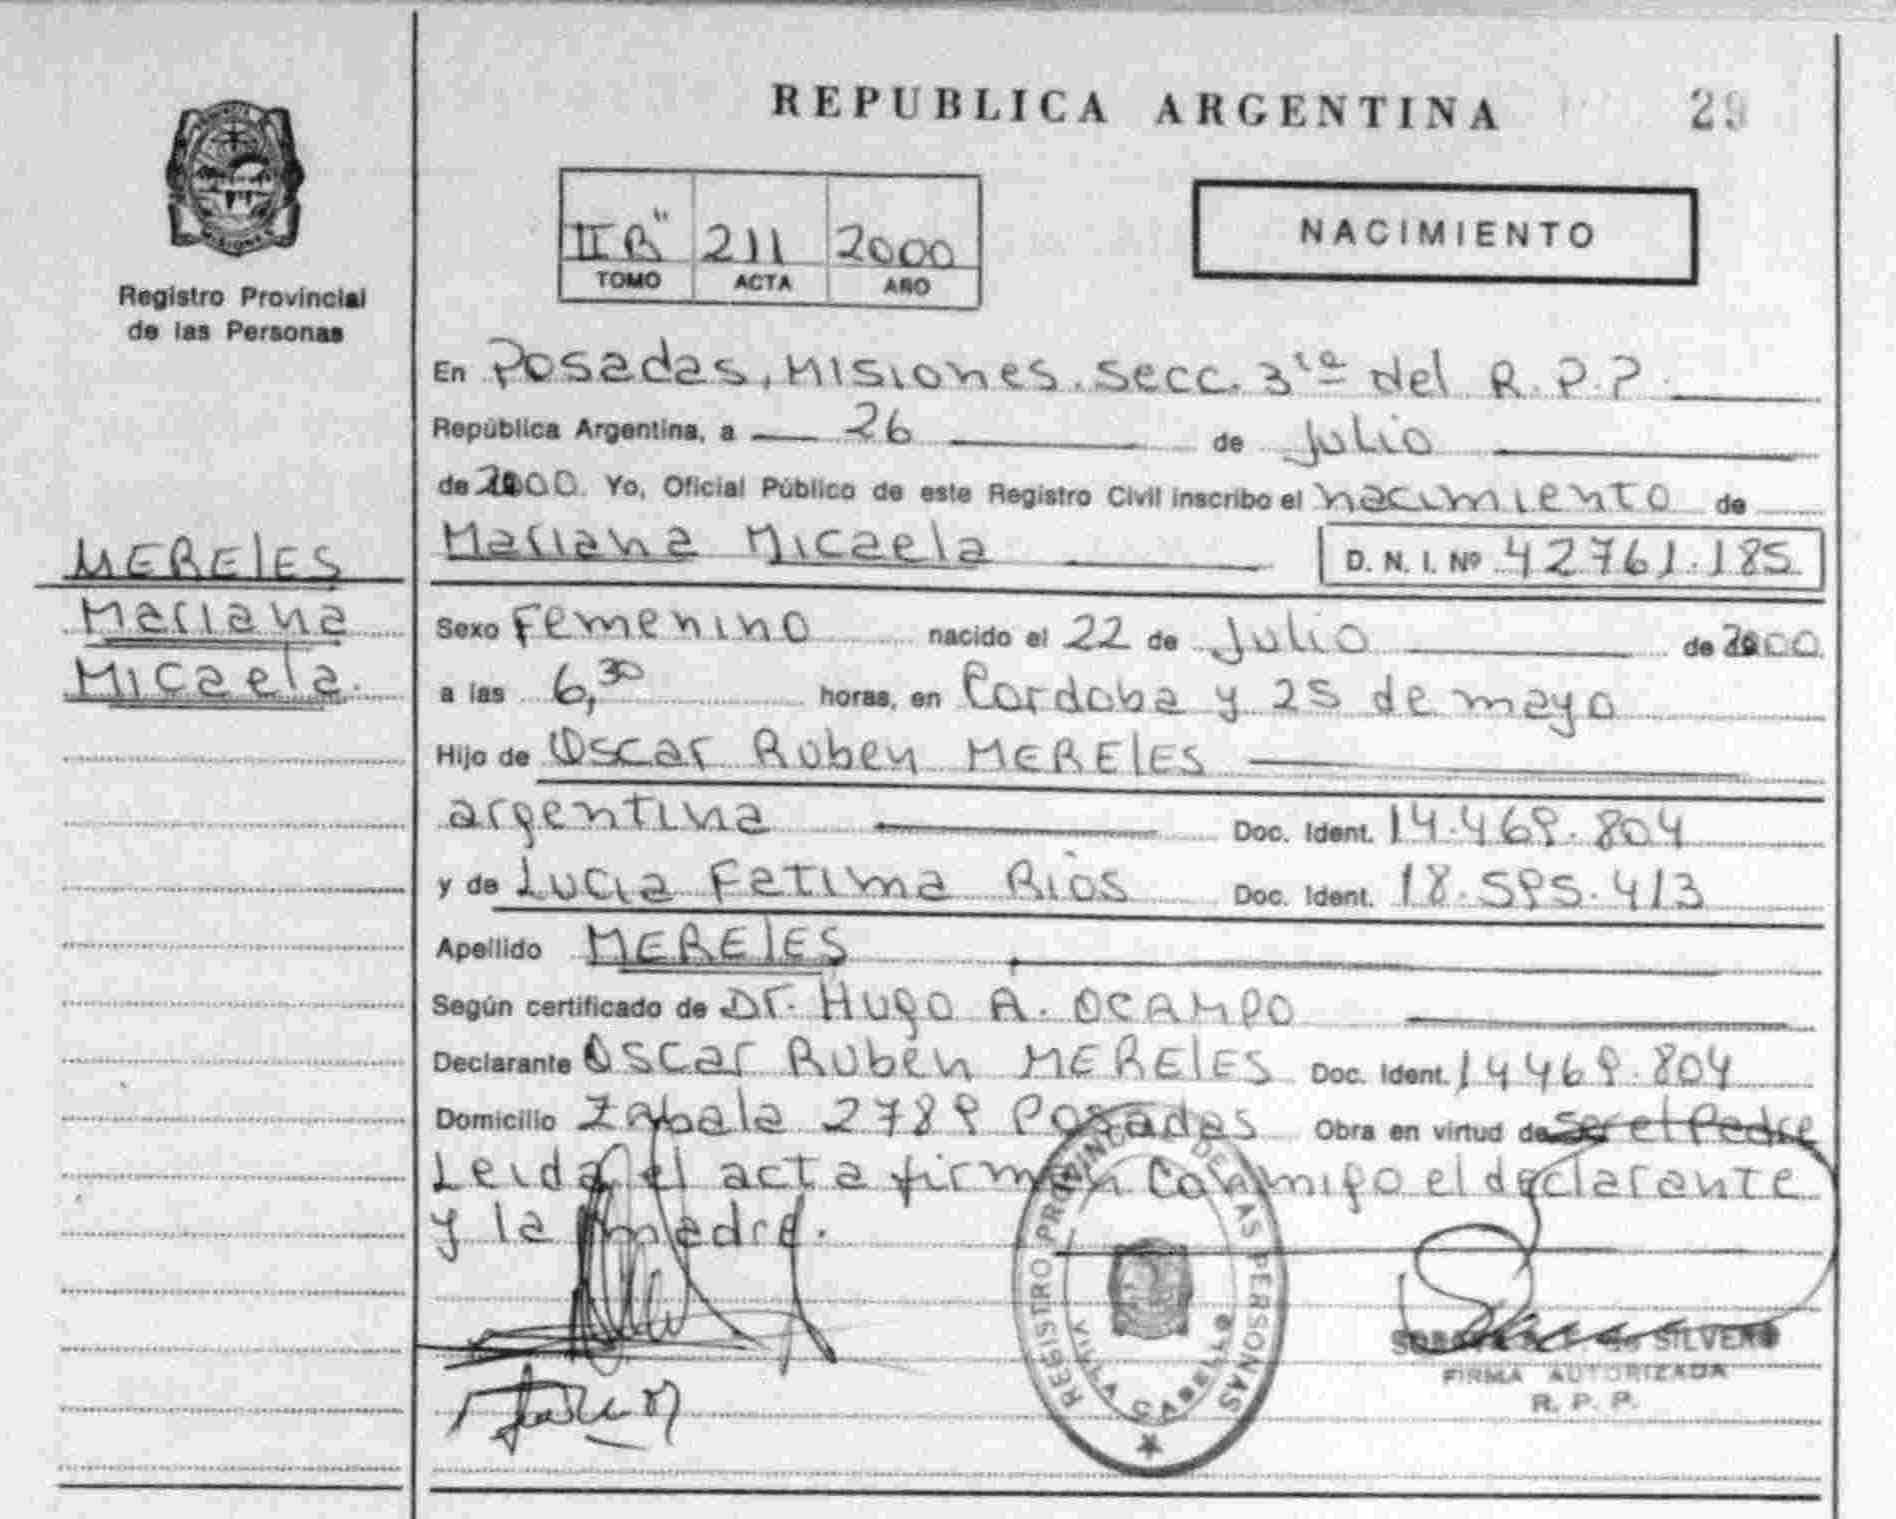 REPUBLICA ARGENTINA 29
Registro Provincial
de las Personas
II B" 211 2000
TOMO ACTA AÑO
NACIMIENTO
En Posadas, Misiones. secc. 3ra del R.P.P.
República Argentina, a 26 de Julio
de 2000. Yo, Oficial Público de este Registro Civil inscribo el nacimiento de
Mariana Micaela D. N. I. Nº 42761.185
MERElES
Mariana
Micaela.
Sexo Femenino nacido el 22 de Julio de 2000
a las 6,30 horas, en Cordoba y 25 de mayo
Hijo de Oscar Ruben MERElES
argentina Doc. Ident. 14.469.804
y de Lucia Fatima Rios Doc. Ident. 18.595.413
Apellido MERElES
Según certificado de Dr. Hugo A. OCAMPO
Declarante Oscar Ruben MERElES Doc. Ident. 14469.804
Domicilio Zabala 2789 Posadas Obra en virtud de ser el Padre
Leida el acta firman conmigo el declarante
y la madre.
REGISTRO PROVINCIAL DE LAS PERSONAS
VILLA CABELLO
SILVERO
FIRMA AUTORIZADA
R. P. P.